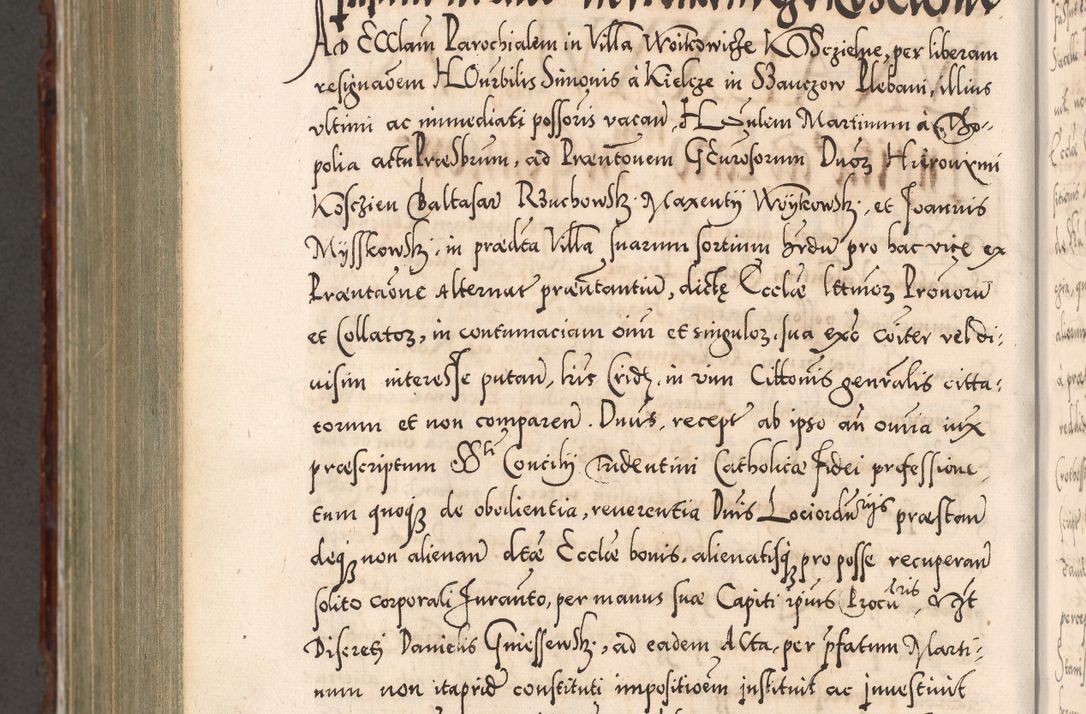 Ad Ecclam Parochialem in Villa Woikowicze Kosczielne, per liberam
resignaoem HOnrbilis Simonis à Kielcze in Banczow Plebani, illius
vltimi ac immediati possoris vacan, HOnlem Martinum à
polia actu Præsbrum, ad Præntonem GEnrosorum Dnoz Hieronimi
Kosczien Baltasar Rzuchowsk. Maxentij Woykowsk. et Joannis
Mysskowsk. in prædta Villa suarum sortium hrdu pro hac vice ex
Præntaone Alternat præntantiu, dictę Ecclæ ltimoz Pronoru
et Collatoz, in contumaciam oim et singuloz, sua exo coiter vel di-
uisim interesse putan, hris Crid, in vim Cittonis genralis citta-
torum et non comparen. Dnus, recept ab ipso an omnia iux
præscriptum SSti Concilij Tridentini Catholicæ Fidei professione,
tum quoqz de obedientia, reuerentia Dnis Lociordnrijs præstan
deqz non alienan dtæ Ecclæ bonis, alienatisqz pro posse recuperan
solito corporali Juranto, per manus suæ Capiti ipius Procuris,
Discreti Danielis Gniessewsk, ad eadem Acta, per pfatum Marti-
num non itaprid constituti impositioem instituit ac inuestiuit